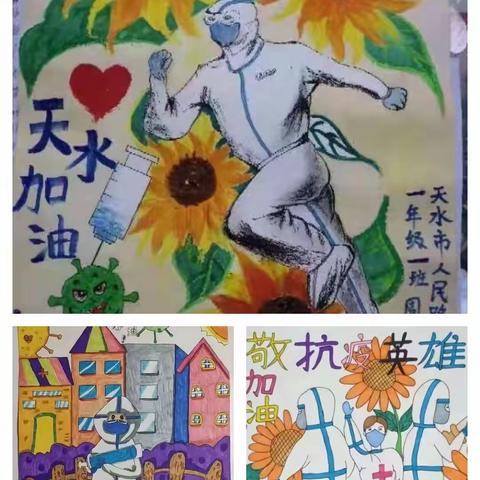 天水
加油
天水市人民路
一年级一班周
加油
敬抗疫英雄
加油